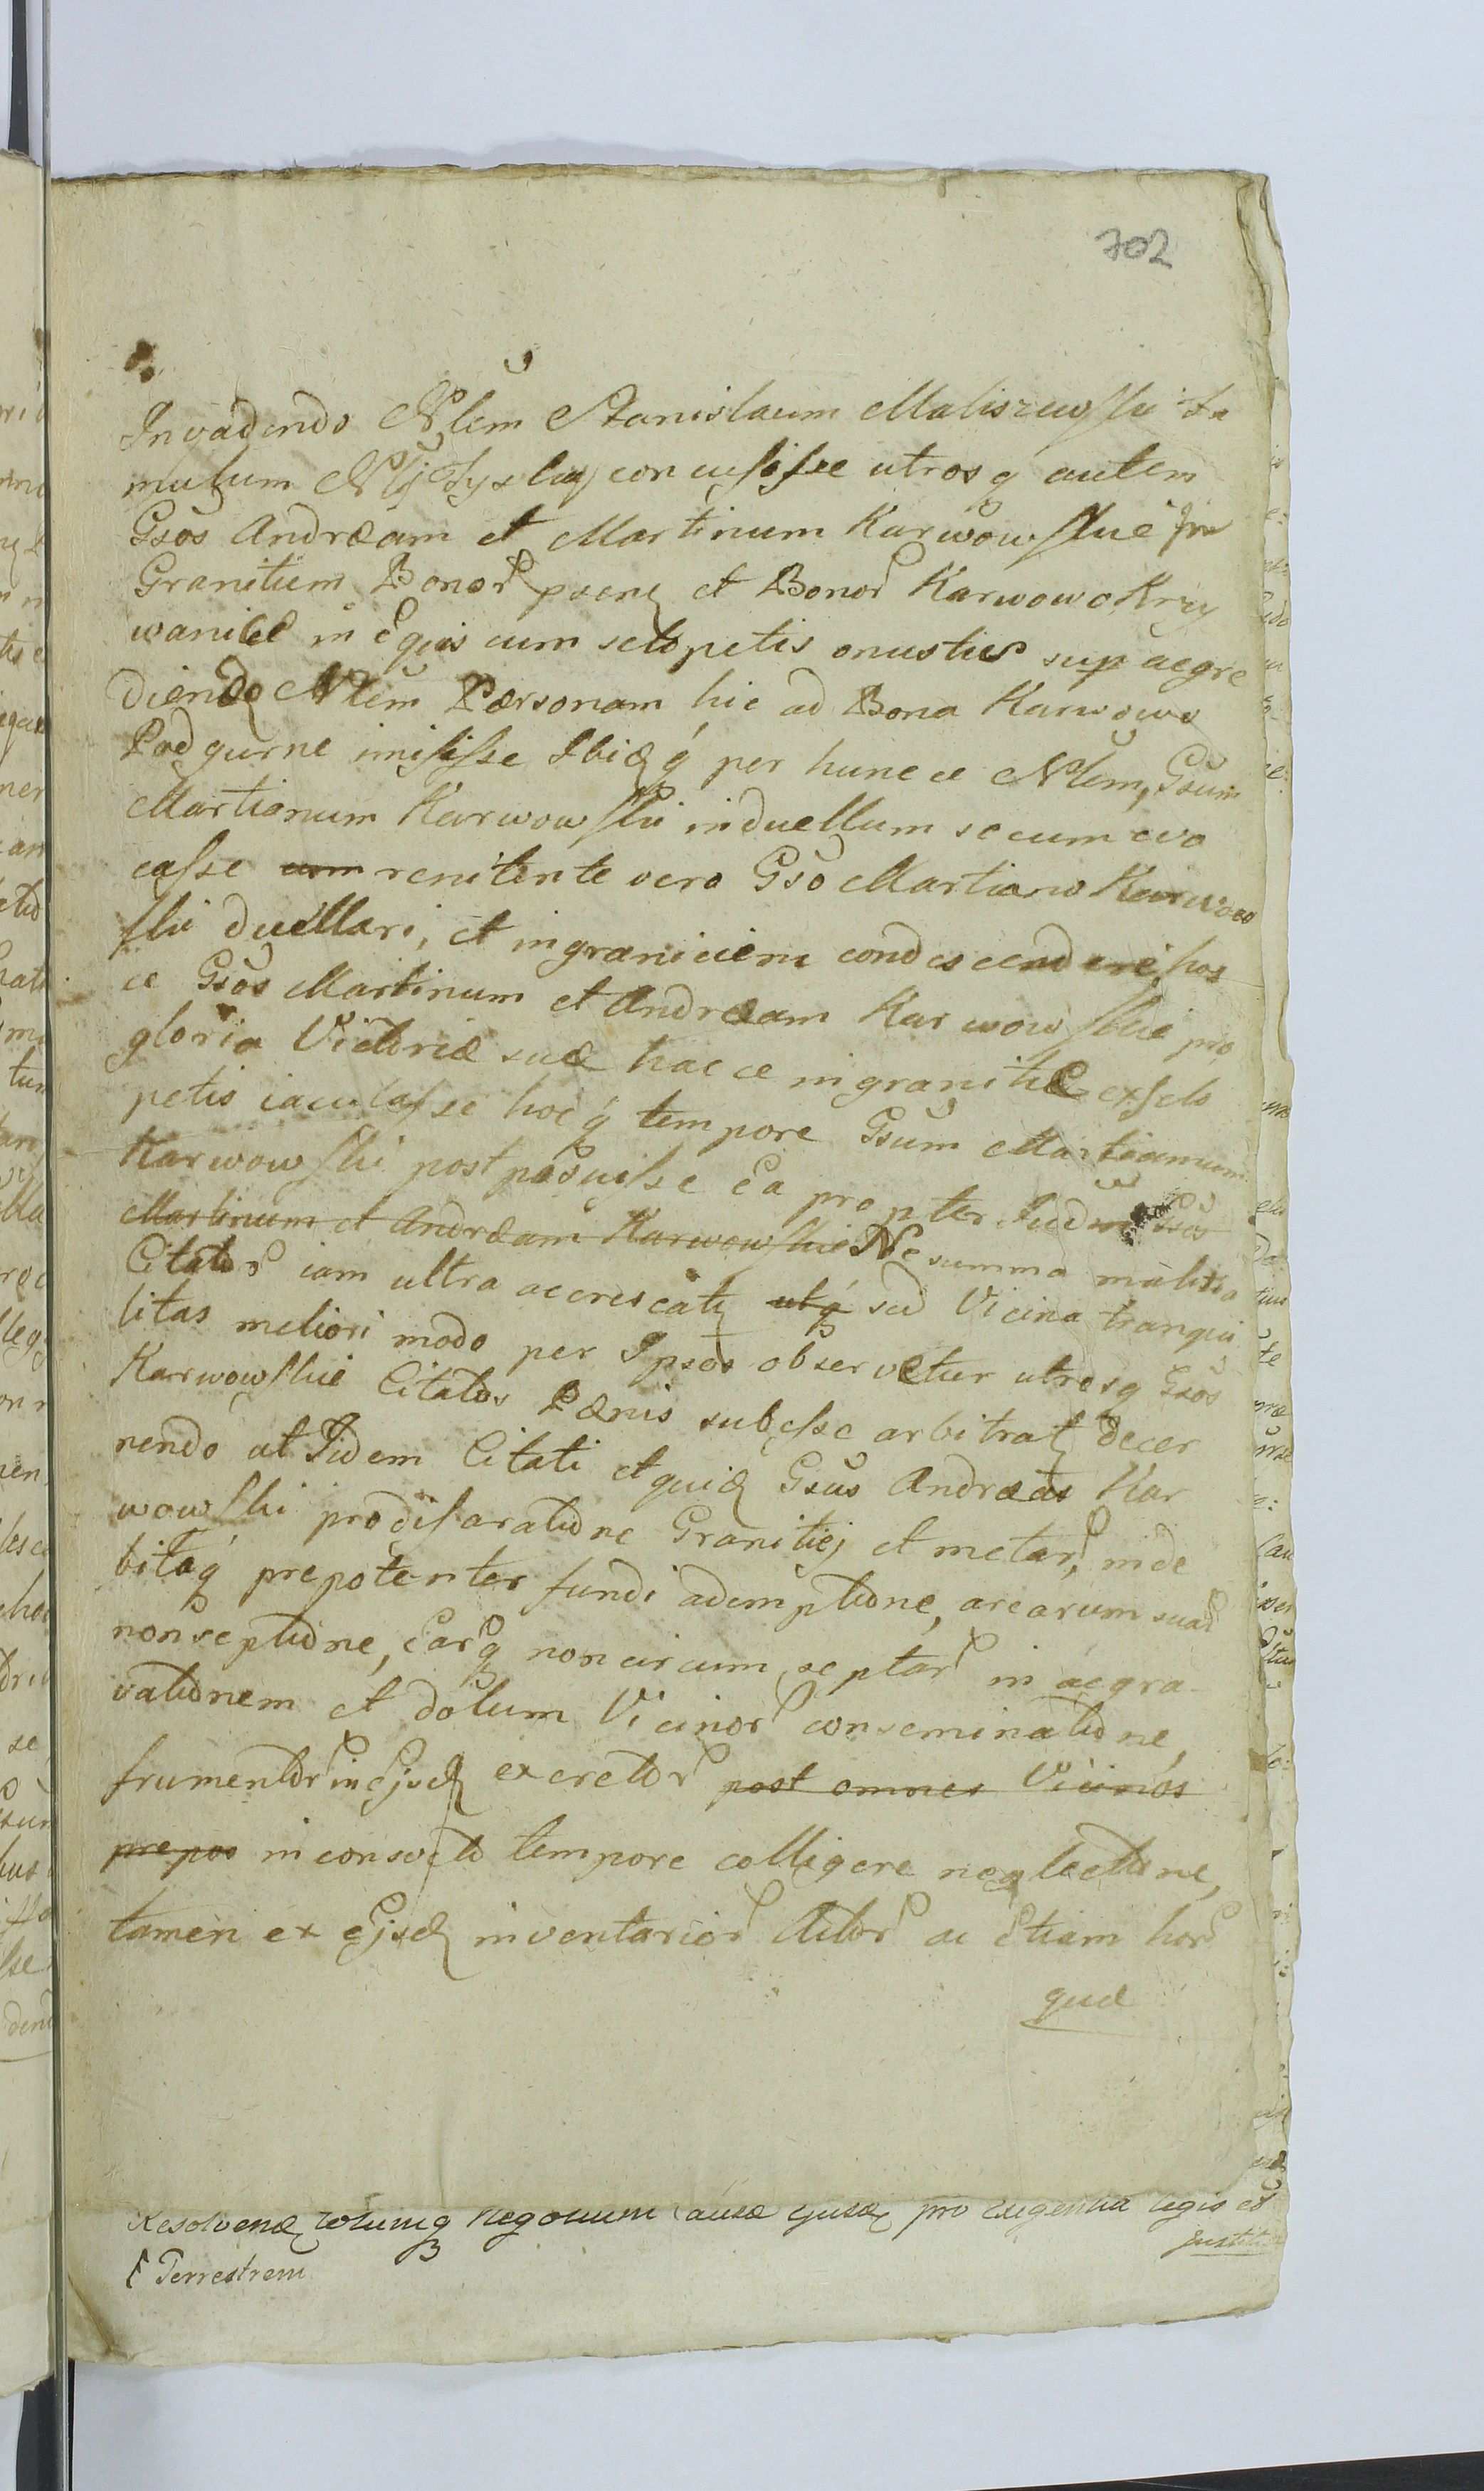 702
Invadendo Nlem Stanislaum Maliszewski fa
mulum Nlis concussisse utrosq autem
Gsos Andræam et Martinum Karwowskie in
Granitiem Bonor psen et Bonor Karwowo Krzy
wanice in Equis cum sclopetis onustis sup aegre
diendo Nlem Personam hic ad Bona Karwowo
Podgurne imisisse Ibidq per hunc ce Nlem, Gsum
Martianum Karwowski in duellum secum evo
casse cum renitente vero Gso Martiano Karwow
ski duellari, et in graniciem condescendere, hos
ce Gsos Martinum et Andræam Karwowskie pro
gloria Victoriæ suæ hac ce in granitie ex sclo
petis iaculasse hocq tempore Gsum Martianum
Karwowski postposuisse Ea propter Iudm Gsos
Martinum et Andræam Karwowskie Ne summa malitia
Citator iam ultra accrescat utq sed Vicina tranqui
litas meliori modo per Ipsos observetur utrosq Gsos
Karwowskie Citatos Pænis subesse arbitrat decer
nendo ut Iidem Citati et quid Gsus Andræas Kar
wowski pro disaratione Granitiej et metar, inde
bitaq prepotenter fundi ademptione, arearum suar
non septione, Earq non circum septar in aegra-
vationem et dolum Vicinor conseminatione,
frumentor in Ejsd excretor post omnes Vicinos
prepos inconsveto tempore colligere neglectione,
tamen ex Ejsd inventarior Actor ac Etiam hor
quæ
Resolvend totumq Negotium Causæ ejusd pro exigentia legis et
Justitiæ
Terrestrem